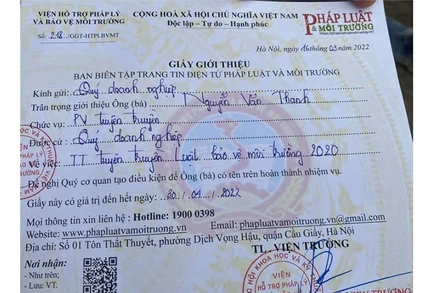 VIỆN HỖ TRỢ PHÁP LÝ
VÀ BẢO VỆ MÔI TRƯỜNG
Số: 218/GGT-HTPLBVMT
CỘNG HOÀ XÃ HỘI CHỦ NGHĨA VIỆT NAM
Độc lập - Tự do - Hạnh phúc
PHÁP LUẬT
& MÔI TRƯỜNG
Hà Nội, ngày 16 tháng 03 năm 2022
GIẤY GIỚI THIỆU
BAN BIÊN TẬP TRANG TIN ĐIỆN TỬ PHÁP LUẬT VÀ MÔI TRƯỜNG
Kính gửi: Quý doanh nghiệp
Trân trọng giới thiệu Ông (bà) Nguyễn Văn Thanh
Chức vụ: PV tuyên truyền
Được cử: Quý doanh nghiệp
Về việc: TT tuyên truyền Luật bảo vệ môi trường 2020
Đề nghị Quý cơ quan tạo điều kiện để Ông (bà) có tên trên hoàn thành nhiệm vụ.
Giấy này có giá trị đến hết ngày: 20/04/2022
Mọi thông tin xin liên hệ: Hotline: 1900 0398
Website: www.phapluatvamoitruong.vn Email: phapluatvamoitruong.vn@gmail.com
Địa chỉ: Số 01 Tôn Thất Thuyết, phường Dịch Vọng Hậu, quận Cầu Giấy, Hà Nội
TL. VIỆN TRƯỞNG
Nơi nhận:
- Như trên;
- Lưu: VT.
VIỆN
HỖ TRỢ PHÁP LÝ